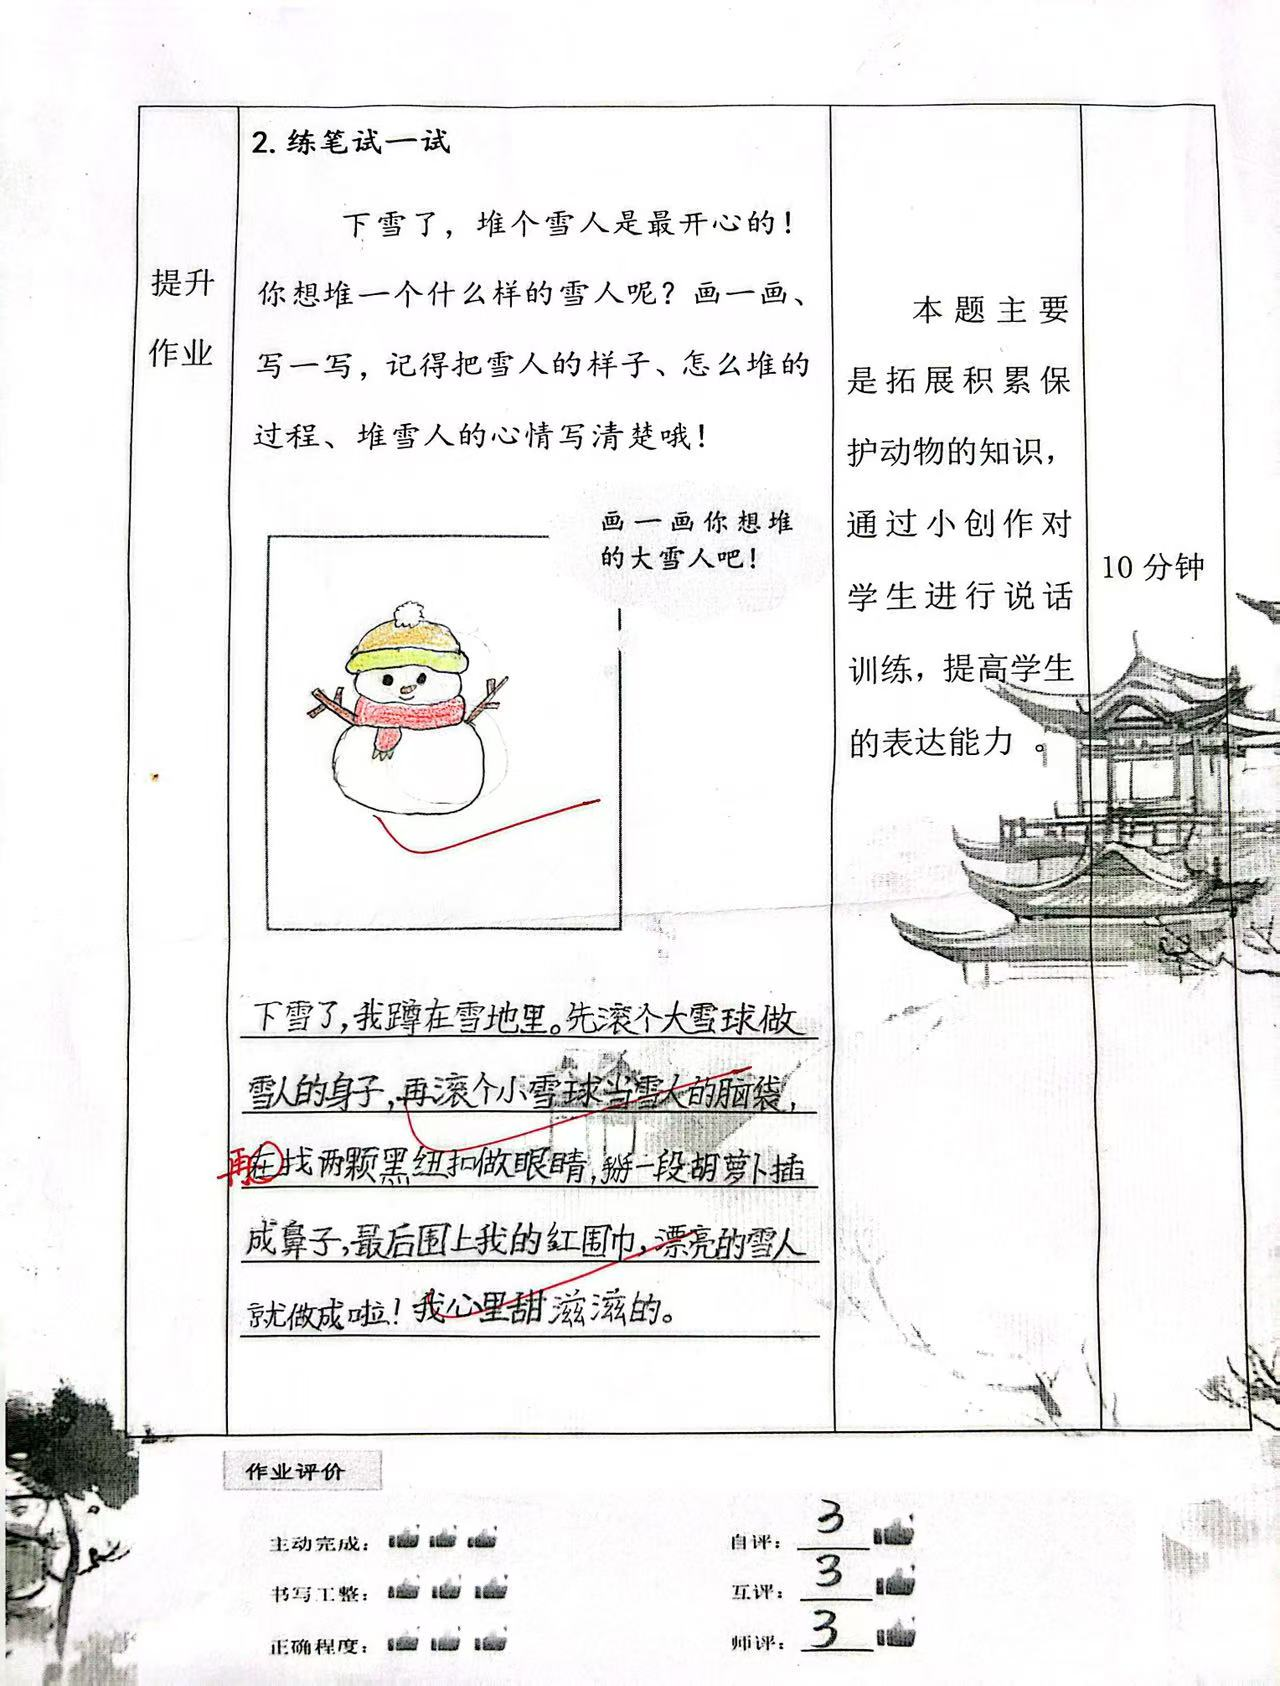 2. 练笔试一试
下雪了，堆个雪人是最开心的！
你想堆一个什么样的雪人呢？画一画、
写一写，记得把雪人的样子、怎么堆的
过程、堆雪人的心情写清楚哦！
提升
作业
画一画你想堆
的大雪人吧！
下雪了，我蹲在雪地里。先滚个大雪球做
雪人的身子，再滚个小雪球当雪人的脑袋，
再在找两颗黑纽扣做眼睛，掰一段胡萝卜插
成鼻子，最后围上我的红围巾，漂亮的雪人
就做成啦！我心里甜滋滋的。
本题主要
是拓展积累保
护动物的知识，
通过小创作对
学生进行说话
训练，提高学生
的表达能力 。
10 分钟
作业评价
主动完成：
书写工整：
正确程度：
自评： 3
互评： 3
师评： 3